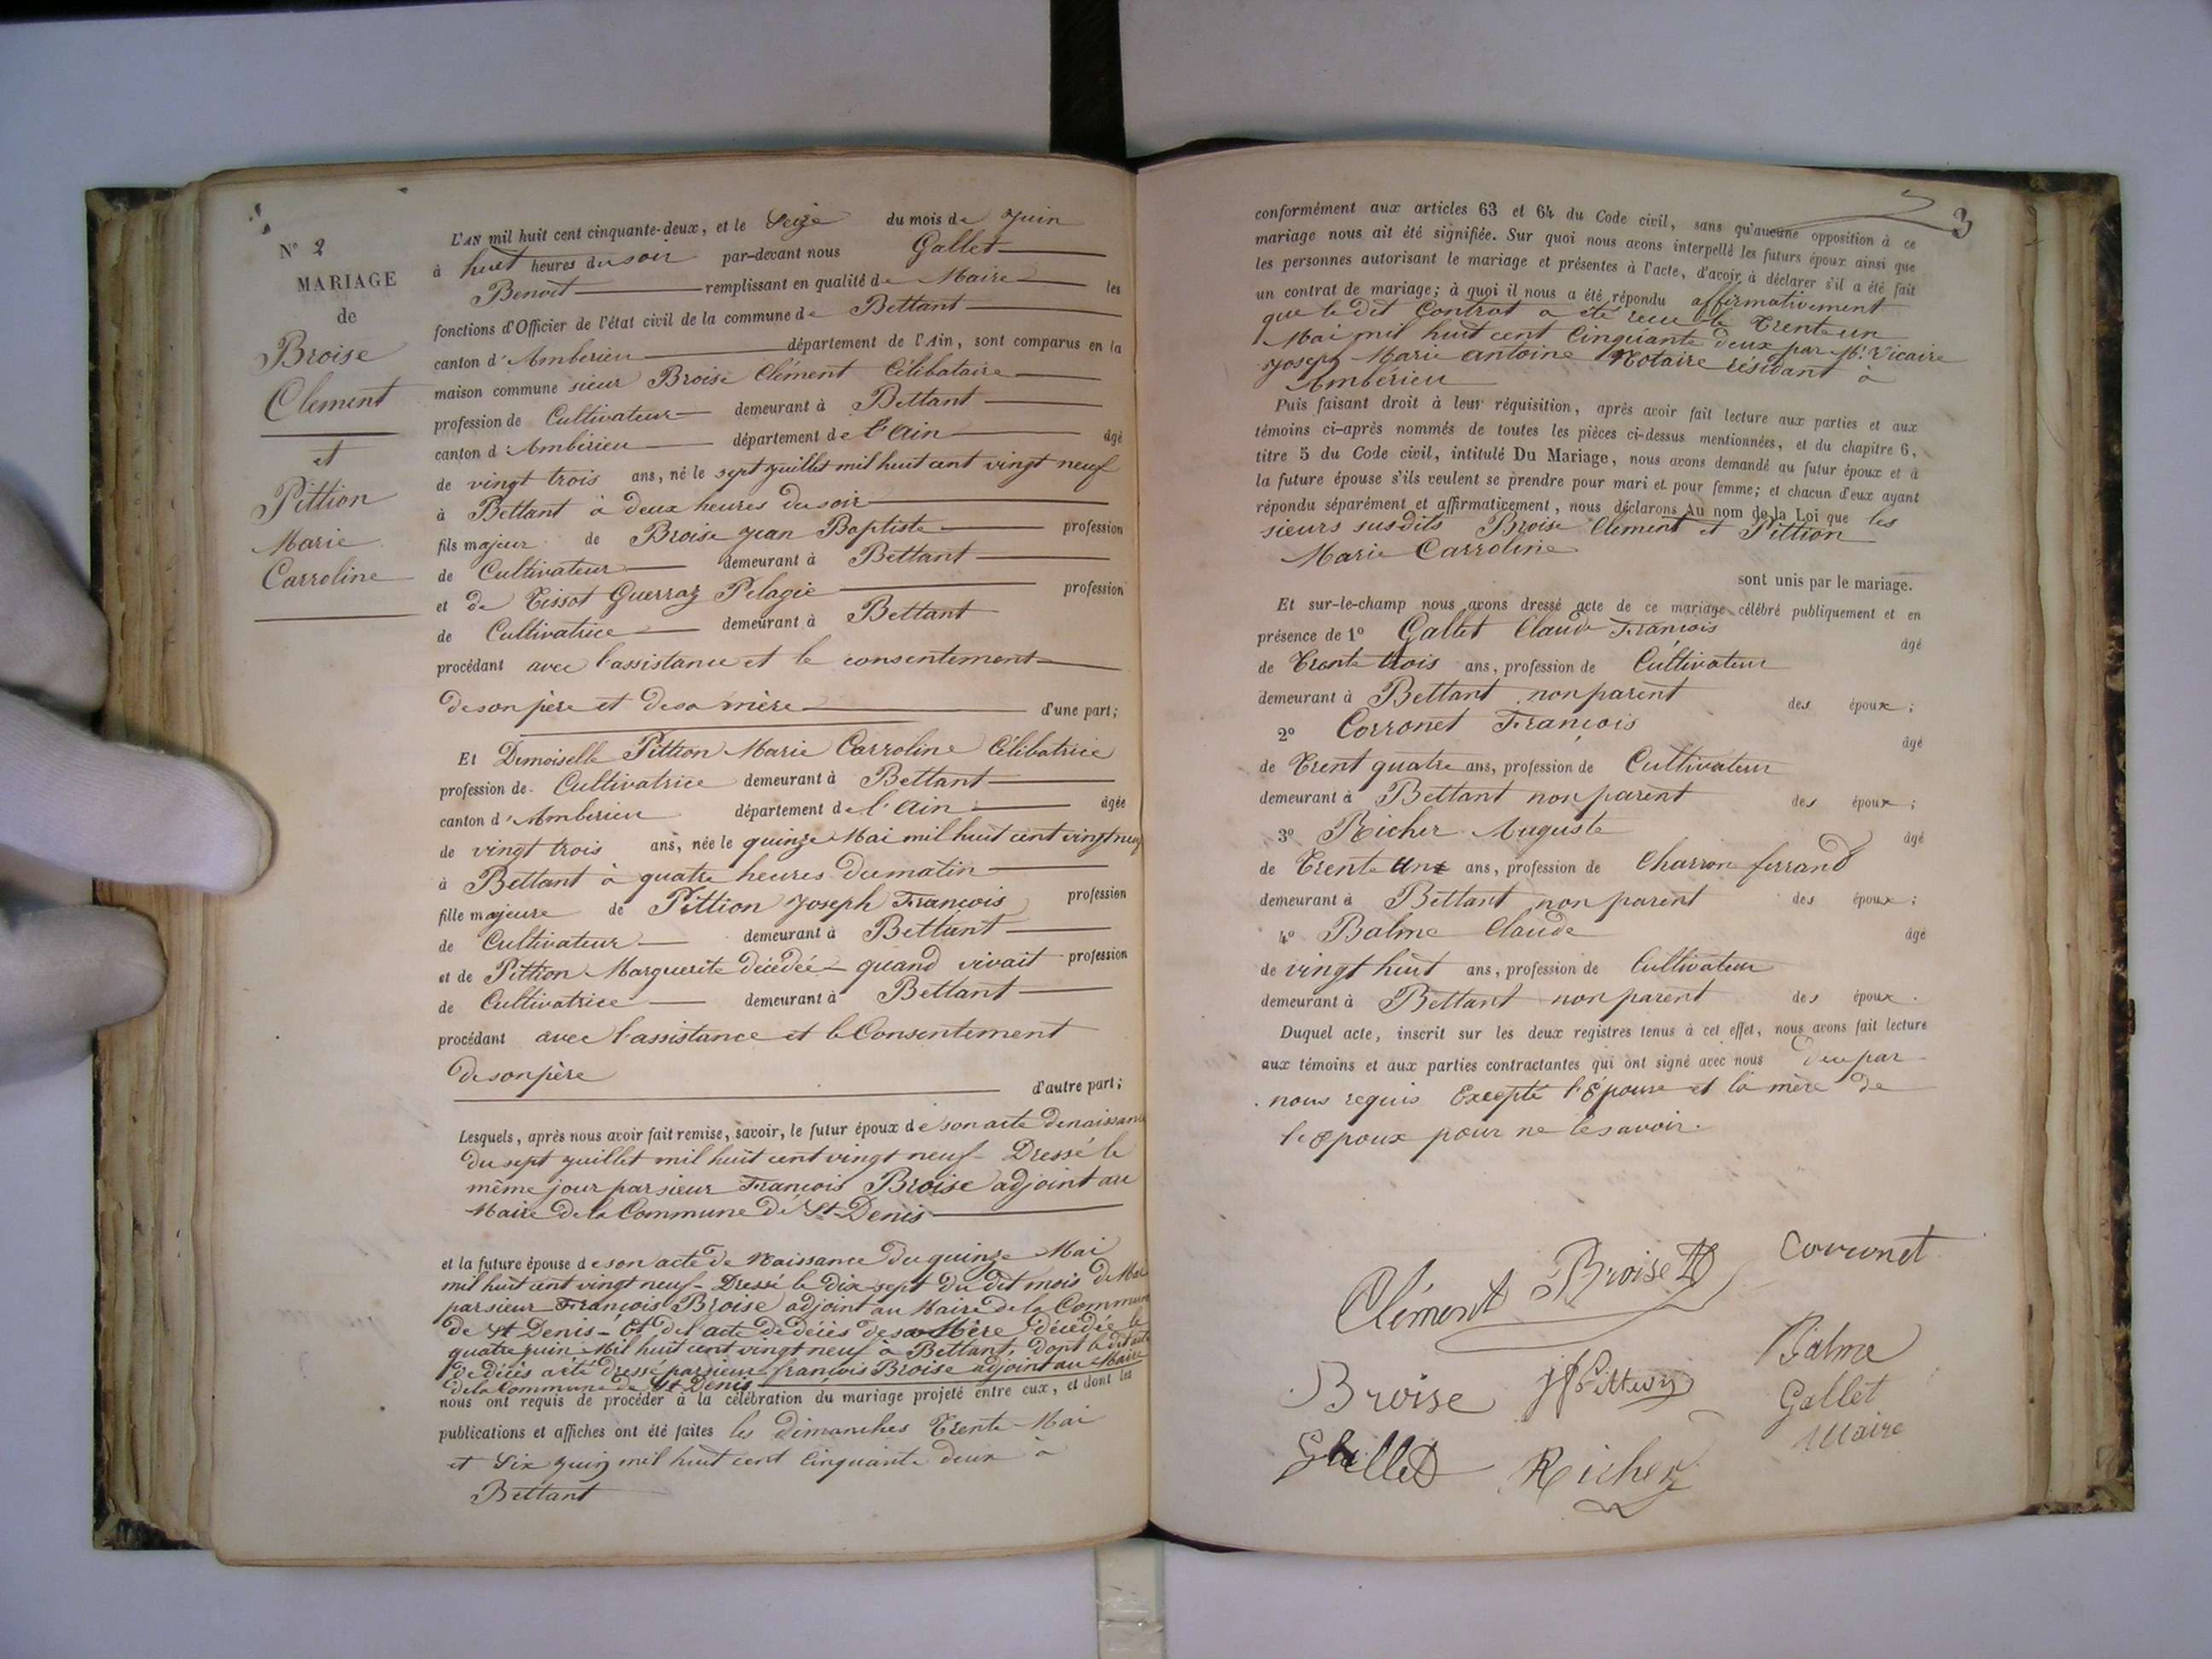 N° 2
MARIAGE
de
Broise
Clement
et
Pittion
Marie
Carroline
L'AN mil huit cent cinquante-deux, et le Seize du mois de Juin
à huit heures du soir par-devant nous Gallet
Benoit remplissant en qualité de Maire les
fonctions d'Officier de l'état civil de la commune de Bettant
canton d'Amberieu département de l'Ain, sont comparus en la
maison commune sieur Broise Clément Célibataire
profession de Cultivateur demeurant à Bettant
canton d'Ambérieu département de l'Ain âgé
de vingt trois ans, né le sept juillet mil huit cent vingt neuf
à Bettant à deux heures du soir
fils majeur de Broise Jean Baptiste profession
de Cultivateur demeurant à Bettant
et de Tissot Guerraz Pelagie profession
de Cultivatrice demeurant à Bettant
procédant avec l'assistance et le consentement
de son père et de sa mère d'une part;
Et Demoiselle Pittion Marie Carroline Célibatrice
profession de Cultivatrice demeurant à Bettant
canton d'Amberieu département de l'Ain âgée
de vingt trois ans, née le quinze Mai mil huit cent vingt neuf
à Bettant à quatre heures du matin
fille majeure de Pittion Joseph François profession
de Cultivateur demeurant à Bettant
et de Pittion Marguerite décédée quand vivait profession
de Cultivatrice demeurant à Bettant
procédant avec l'assistance et le Consentement
de son père d'autre part;
Lesquels, après nous avoir fait remise, savoir, le futur époux de son acte de naissance
du sept juillet mil huit cent vingt neuf Dressé le
même jour par sieur François Broise adjoint au
Maire de la Commune de St Denis
et la future épouse de son acte de Naissance du quinze Mai
mil huit cent vingt neuf Dressé le Dix sept du dit mois de Mai
par sieur François Broise adjoint au Maire de la Commune
de St Denis Et de l'acte de décès de sa Mère décédée le
quatre juin Mil huit cent vingt neuf à Bettant, dont le dit acte
de décès a été dressé par sieur françois Broise adjoint au Maire
de la Commune de St Denis
nous ont requis de procéder à la célébration du mariage projeté entre eux, et dont les
publications et affiches ont été faites les dimanches Trente Mai
et Six Juin mil huit cent Cinquante deux à
Bettant
3
conformément aux articles 63 et 64 du Code civil, sans qu'aucune opposition à ce
mariage nous ait été signifiée. Sur quoi nous avons interpellé les futurs époux ainsi que
les personnes autorisant le mariage et présentes à l'acte, d'avoir à déclarer s'il a été fait
un contrat de mariage; à quoi il nous a été répondu affirmativement
que le dit Contrat a été recu le Trente un
Mai mil huit cent Cinquante deux par Me Vicaire
Joseph Marie Antoine Notaire résidant à
Ambérieu
Puis faisant droit à leur réquisition, après avoir fait lecture aux parties et aux
témoins ci-après nommés de toutes les pièces ci-dessus mentionnées, et du chapitre 6,
titre 5 du Code civil, intitulé Du Mariage, nous avons demandé au futur époux et à
la future épouse s'ils veulent se prendre pour mari et pour femme; et chacun d'eux ayant
répondu séparément et affirmativement, nous déclarons Au nom de la Loi que les
sieurs susdits Broise Clement et Pittion
Marie Carroline
sont unis par le mariage.
Et sur-le-champ nous avons dressé acte de ce mariage célébré publiquement et en
présence de 1° Gallet Claude François âgé
de Trente trois ans, profession de Cultivateur
demeurant à Bettant non parent des époux;
2° Corronet François âgé
de Trent quatre ans, profession de Cultivateur
demeurant à Bettant non parent des époux;
3° Richer Auguste âgé
de Trente ans, profession de Charron ferrand
demeurant à Bettant non parent des époux;
4° Balme Claude âgé
de vingt huit ans, profession de Cultivateur
demeurant à Bettant non parent des époux.
Duquel acte, inscrit sur les deux registres tenus à cet effet, nous avons fait lecture
aux témoins et aux parties contractantes qui ont signé avec nous par
nous requis Excepté l'Epouse et la mère de
l'epoux pour ne le savoir.
Corronet
Clément Broise
Balme
Broise JfPittion
Gallet
Maire
Gallet Richer